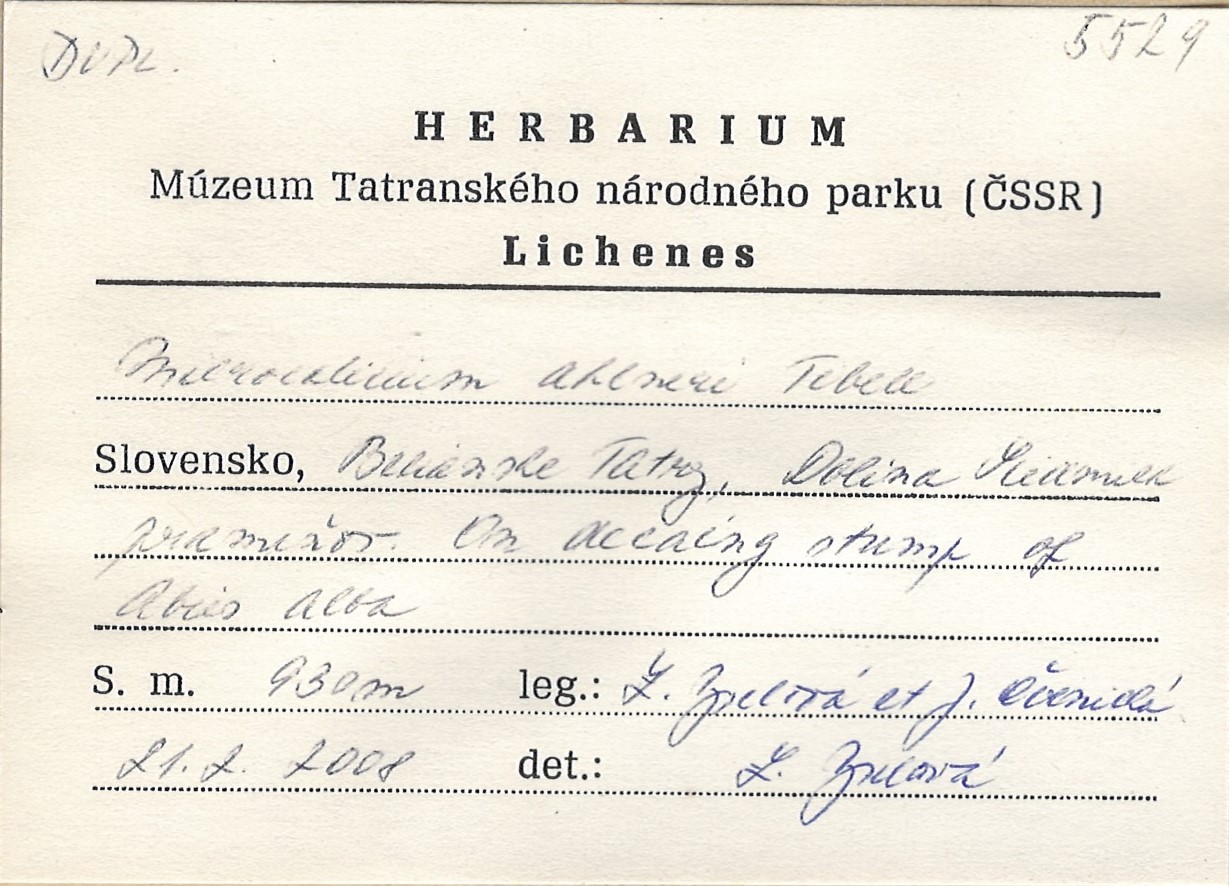 DUPL. 5529
HERBARIUM
Múzeum Tatranského národného parku (ČSSR)
Lichenes
Microcalicium ahlneri Tibell
Slovensko, Belianske Tatry, Dolina Siedmich
prameňov. On decaing stump of
Abies alba
S. m. 930m leg.: et J.
21. 2. 2008 det.: